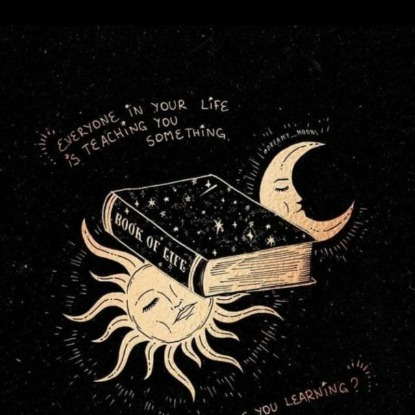 EVERYONE IN YOUR LiFE
iS TEACHiNG YOU
SOMETHING.
BOOK OF LIFE
YOU LEARNiNG?